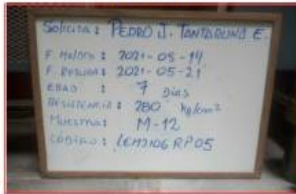 Solicita: PEDRO J. TANTARUNA E.
F. Moldeo: 2021-05-14
F. ROTURA: 2021-05-21
EDAD : 7 Dias
RESISTENCIA: 280 kg/cm²
MUESTRA: M-12
CÓDIGO: LEM3106RP05